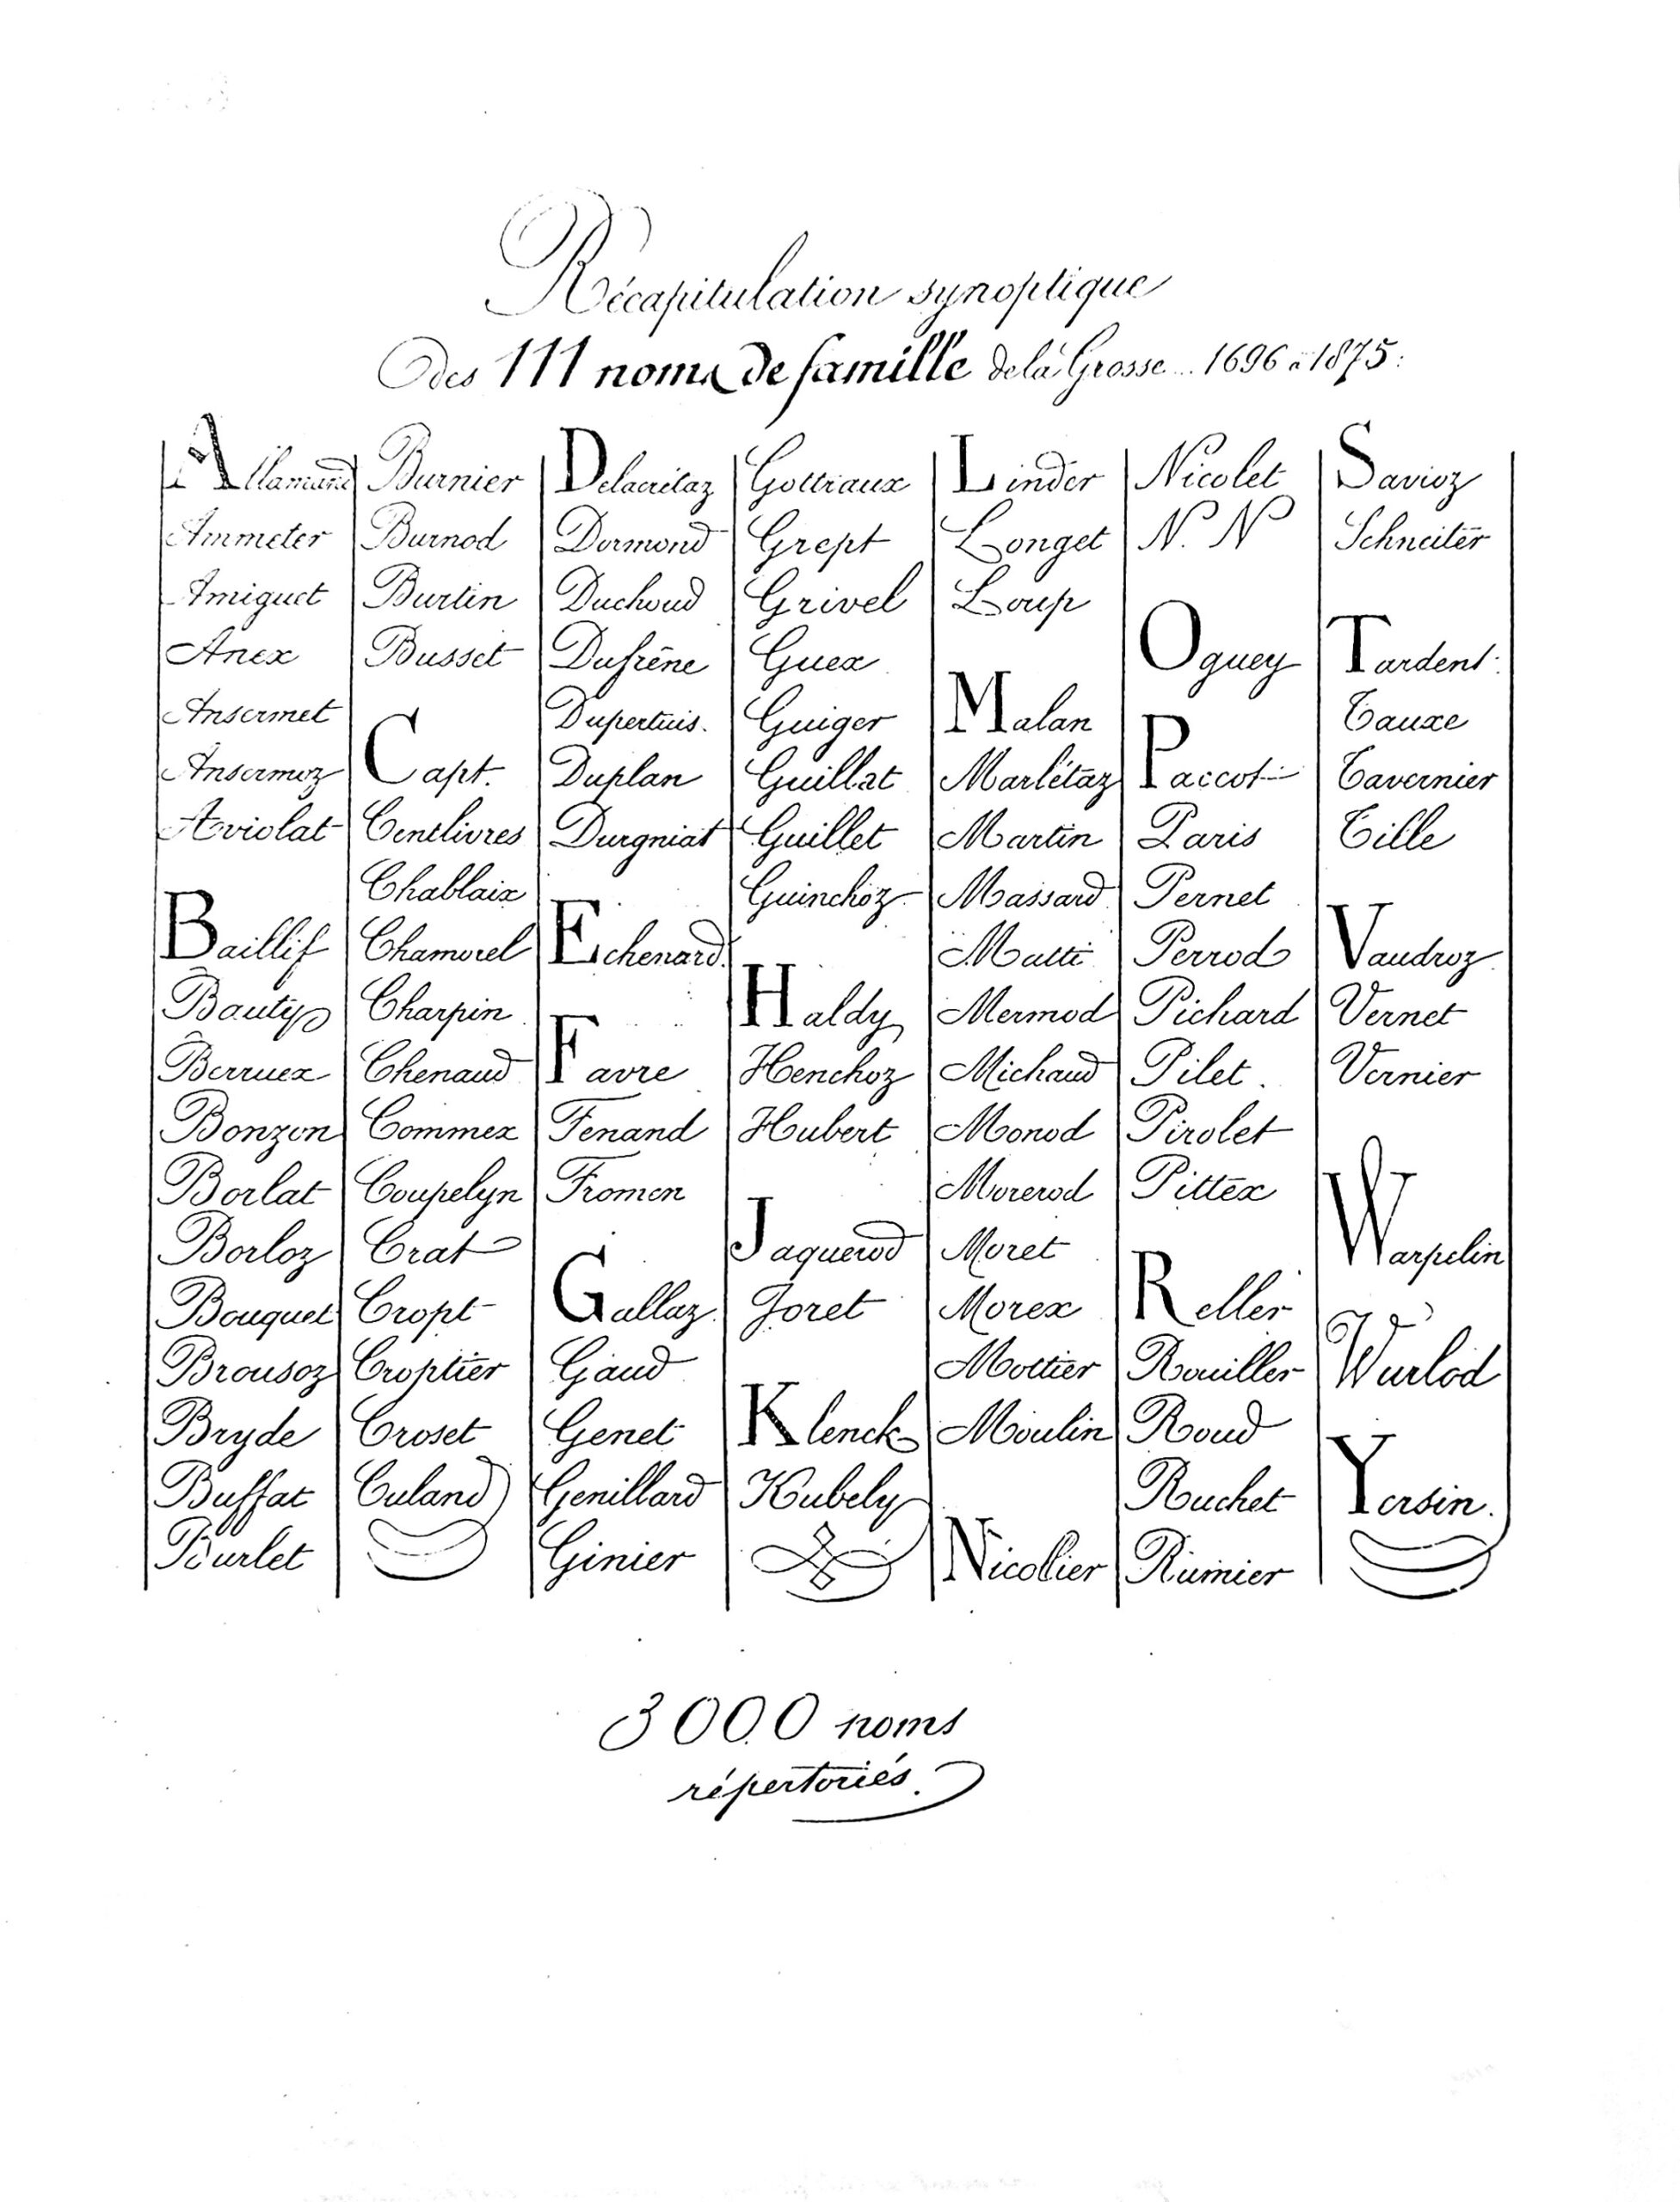 Récapitulation synoptique
des 111 noms de famille de la Grosse 1696 à 1875:
Allamand
Ammeter
Amiguet
Anex
Ansermet
Ansermoz
Aviolat
Baillif
Bauty
Berruex
Bonzon
Borlat
Borloz
Bouquet
Brousoz
Bryde
Buffat
Burlet
Burnier
Burnod
Burtin
Busset
Capt.
Centlivres
Chablaix
Chamorel
Charpin
Chenaud
Commex
Coupelyn
Crat
Cropt
Croptier
Croset
Culand
Delacrétaz
Dormond
Duchoud
Dufrêne
Dupertuis.
Duplan
Durgniat
Echenard
Favre
Fenand
Fromen
Gallaz
Gaud
Genet
Genillard
Ginier
Gottraux
Grept
Grivel
Guex
Guiger
Guillat
Guillet
Guinchoz
Haldy
Henchoz
Hubert
Jaquerod
Joret
Klenck
Kubely
Linder
Longet
Loup
Malan
Marlétaz
Martin
Massard
Matti
Mermod
Michaud
Monod
Morerod
Moret
Morex
Mottier
Moulin
Nicolier
Nicolet
N. N
Oguey
Paccot
Paris
Pernet
Perrod
Pichard
Pilet.
Pirolet
Pittex
Reller
Rouiller
Roud
Ruchet
Rumier
Savioz
Schneiter
Tardent
Tauxe
Tavernier
Tille
Vaudroz
Vernet
Vernier
Warpelin
Wurlod
Yersin.
3000 noms
répertoriés.